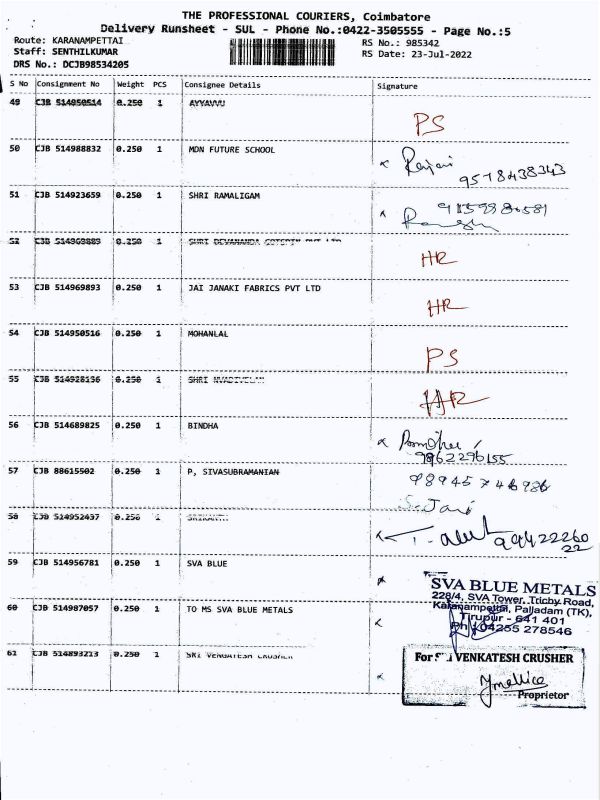 THE PROFESSIONAL COURIERS, Coimbatore
Delivery Runsheet - SUL - Phone No.:0422-3505555 - Page No.:5
Route: KARANAMPETTAI
Staff: SENTHILKUMAR
DRS No.: DCJB98534205
RS No.: 985342
RS Date: 23-Jul-2022
S No Consignment No Weight PCS Consignee Details Signature
49 CJB 514950514 0.250 1 AYYAVVU PS
50 CJB 514988832 0.250 1 MDN FUTURE SCHOOL 9578438343
51 CJB 514923659 0.250 1 SHRI RAMALIGAM
52 CJB 514969889 0.250 1 SHRI DEVANANDA PVT LTD HR
53 CJB 514969893 0.250 1 JAI JANAKI FABRICS PVT LTD HR
54 CJB 514950516 0.250 1 MOHANLAL PS
55 CJB 514928156 0.250 1 SHRI HR
56 CJB 514689825 0.250 1 BINDHA 9862296155
57 CJB 88615502 0.250 1 P, SIVASUBRAMANIAN
58 CJB 514952437 0.250 1 9942226022
59 CJB 514956781 0.250 1 SVA BLUE
SVA BLUE METALS
228/4, SVA Tower, Trichy Road,
Karanampettai, Palladam (TK),
Tirupur - 641 401
Ph : 04255 278546
60 CJB 514987057 0.250 1 TO MS SVA BLUE METALS
61 CJB 514893213 0.250 1 SRI VENGATESH CRUSHER
For VENKATESH CRUSHER
Proprietor